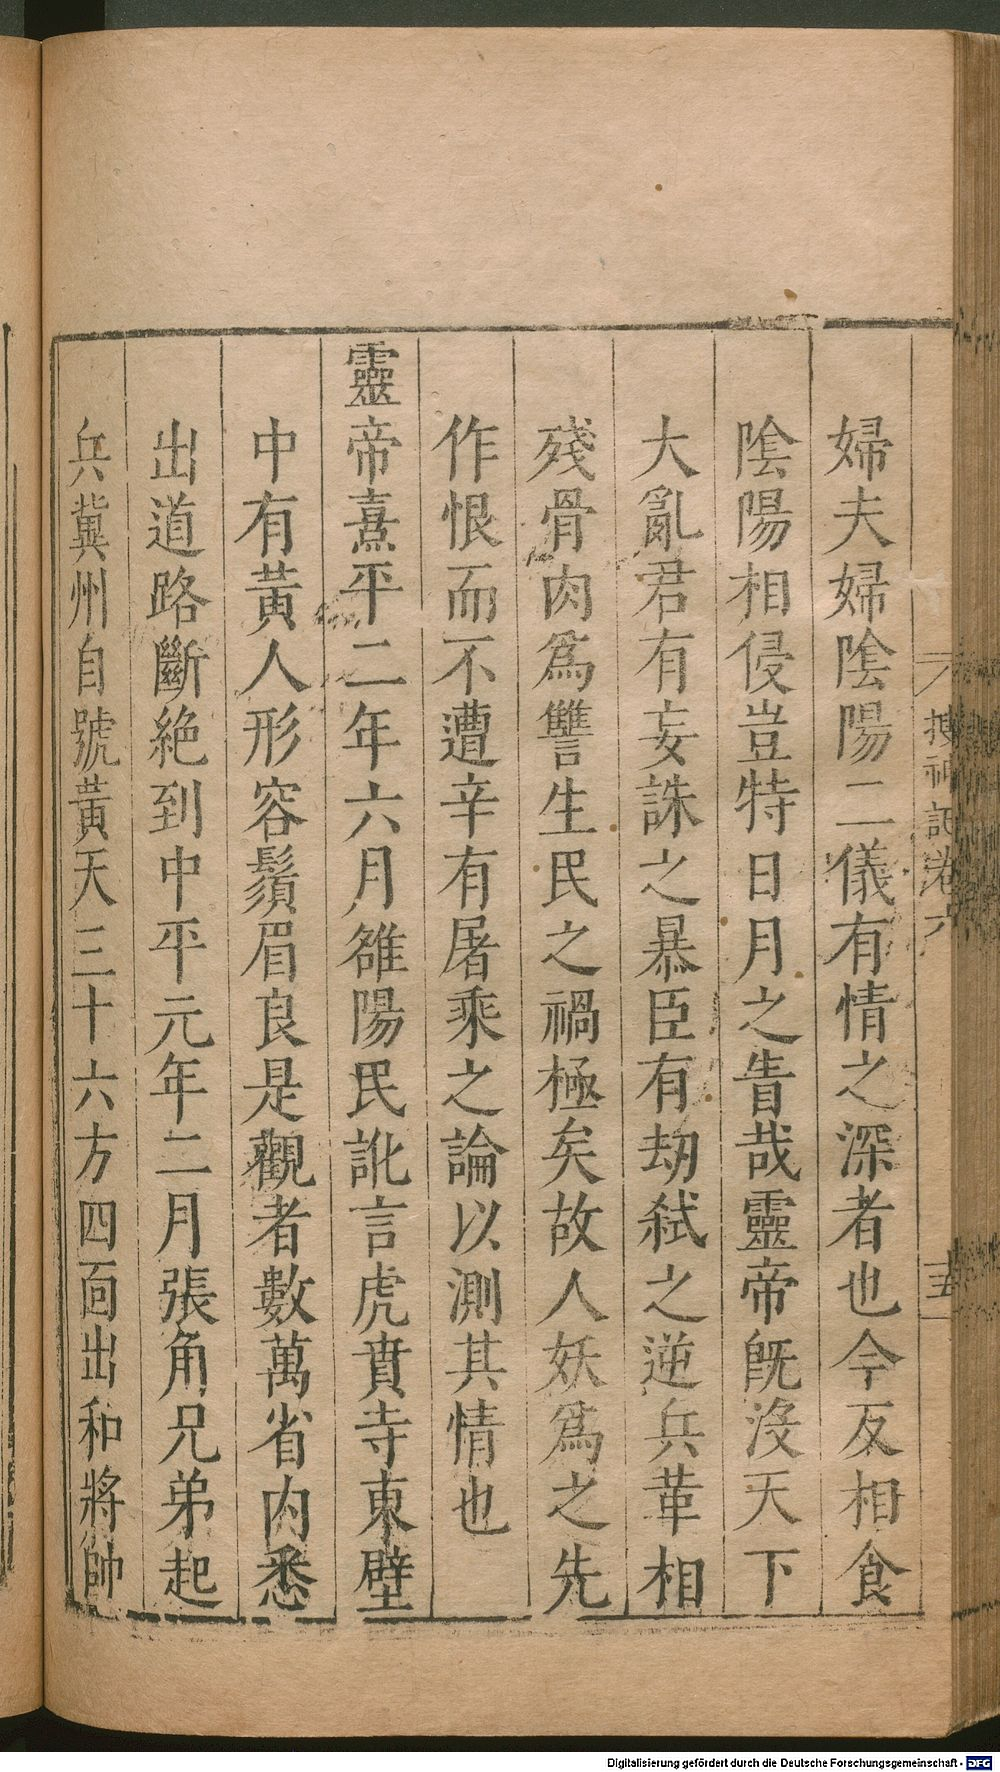 婦夫婦陰陽二儀有情之深者也今反相食
陰陽相侵豈特日月之眚哉靈帝既沒天下
大亂君有妄誅之暴臣有劫弑之逆兵革相
殘骨肉爲讐生民之禍極矣故人妖爲之先
作恨而不遭辛有屠乘之論以測其情也
靈帝熹平二年六月雒陽民訛言虎賁寺東壁
中有黃人形容鬚眉良是觀者數萬省内悉
出道路斷絶到中平元年二月張角兄弟起
兵冀州自號黃天三十六方四面出和將帥
搜神記卷六
十五
Digitalisierung gefördert durch die Deutsche Forschungsgemeinschaft - DFG